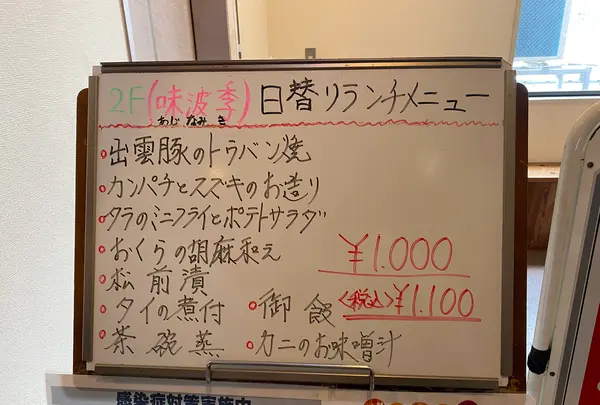 2F(味波季) 日替りランチメニュー
あじなみき
出雲豚のトウバン焼
カンパチとスズキのお造り
タラのミニフライとポテトサラダ
おくらの胡麻和え
松前漬
タイの煮付
茶碗蒸
御飯
カニのお味噌汁
¥1.000
<税込>¥1.100
感染症対策実施中